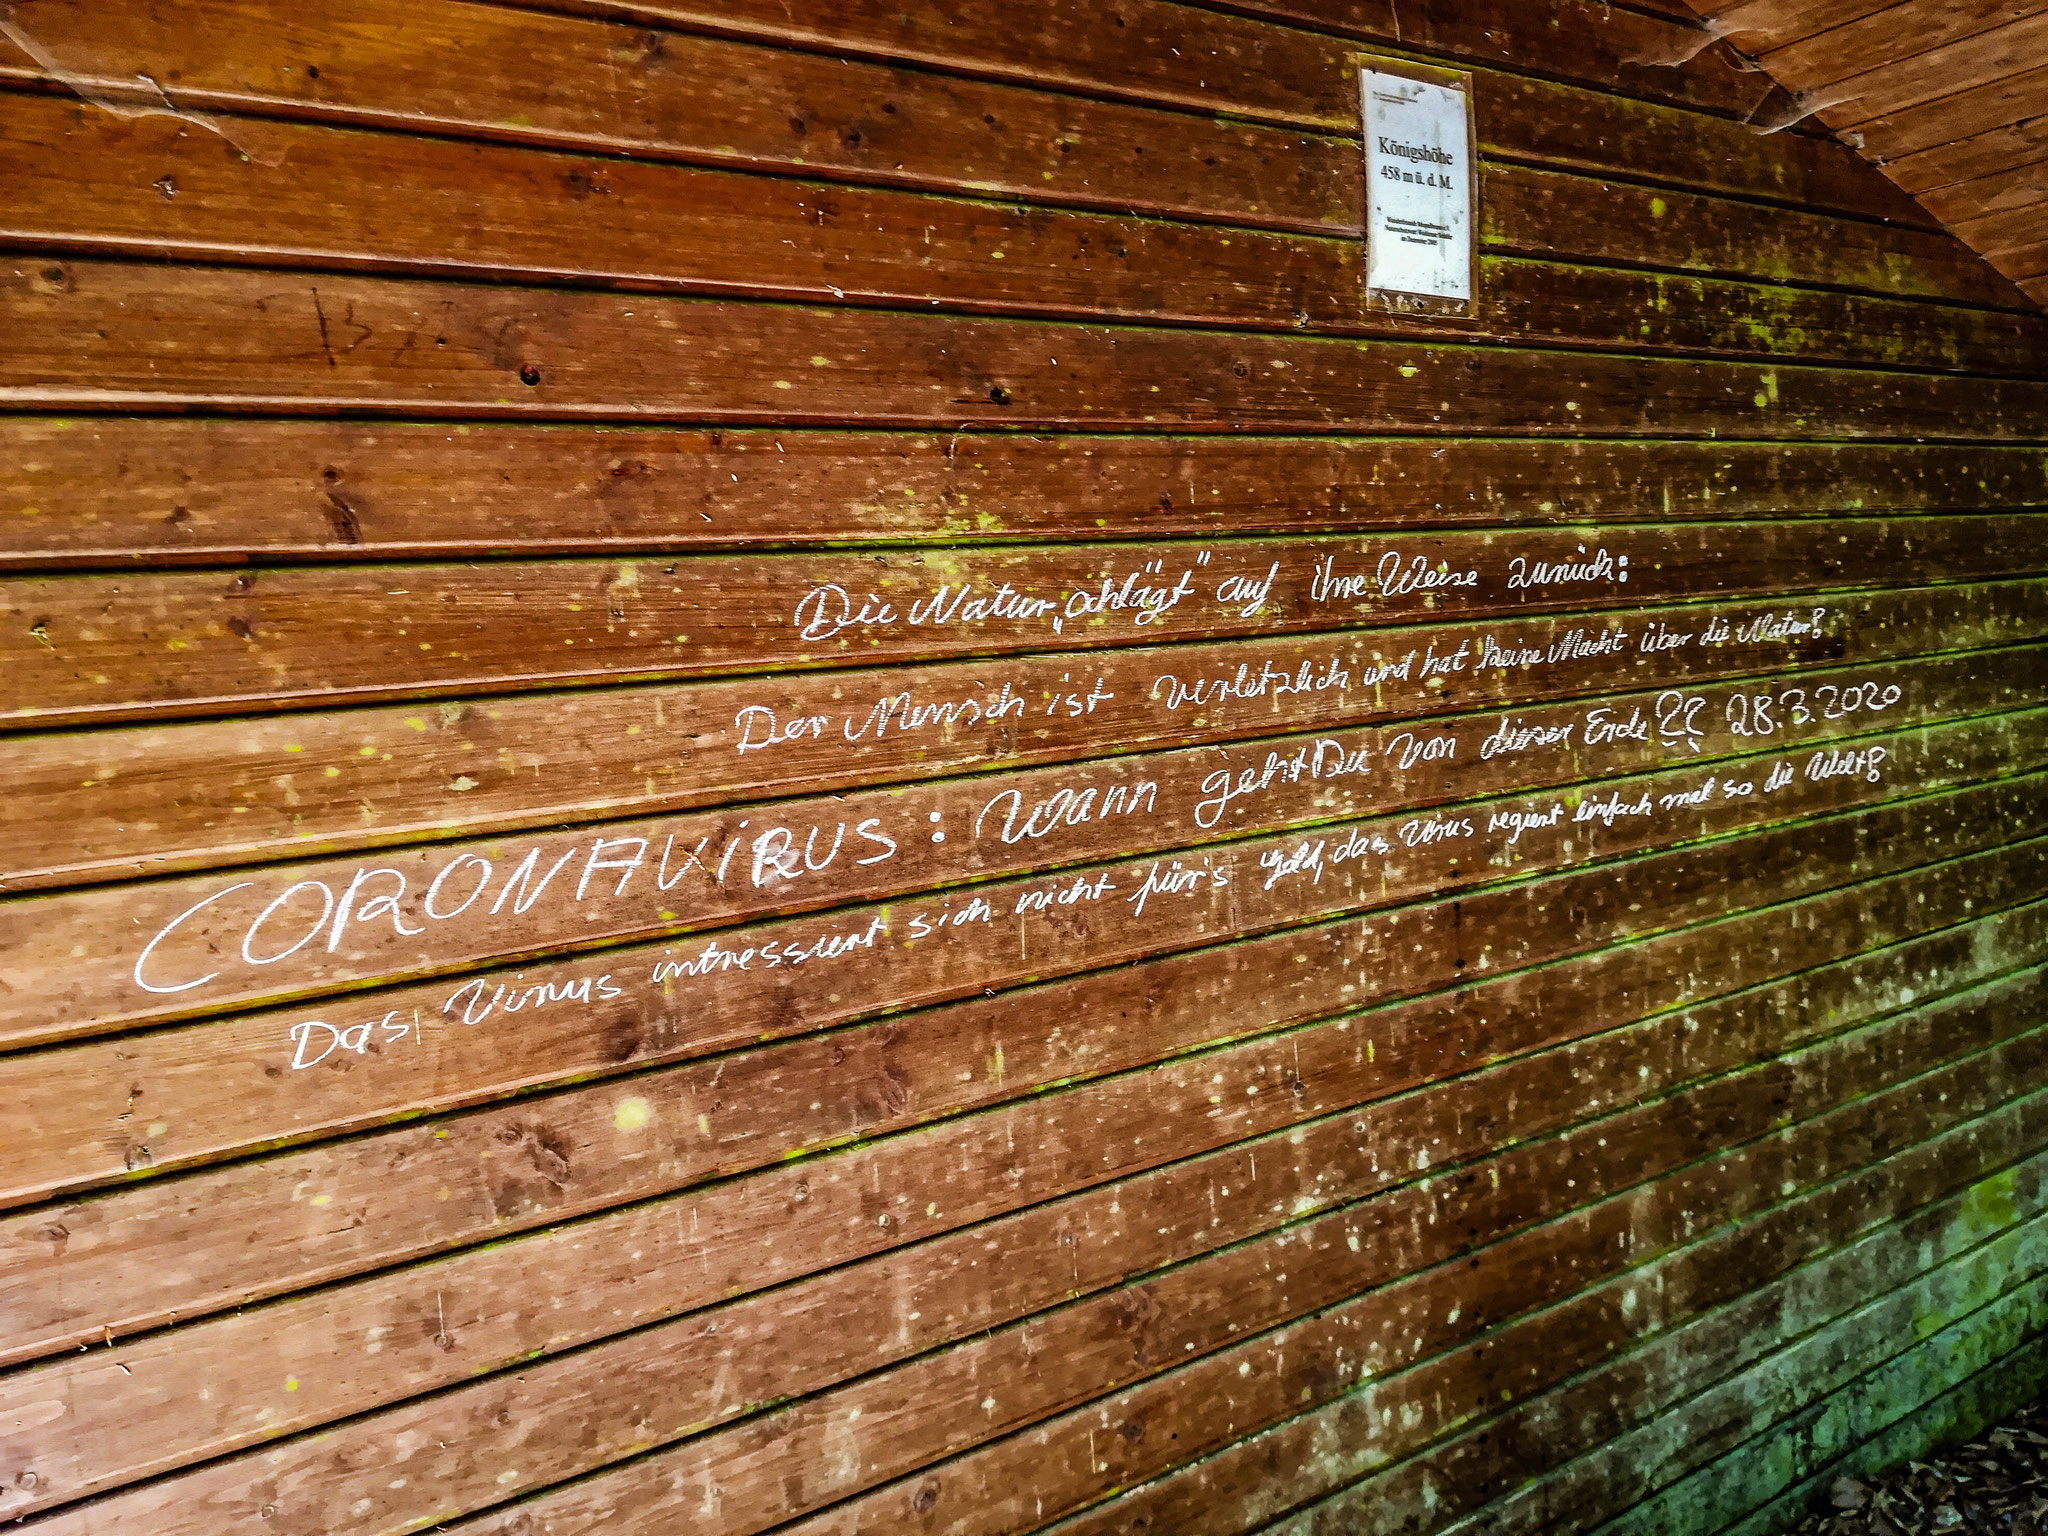 Königshöhe
458 m ü. d. M.
Die Natur „schlägt" auf ihre Weise zurück:
Der Mensch ist verletzlich und hat keine Macht über die Natur!
CORONAVIRUS: Wann gehst Du von dieser Erde ?? 28.3.2020
Das Virus intressiert sich nicht für's Geld, das Virus regiert einfach mal so die Welt!